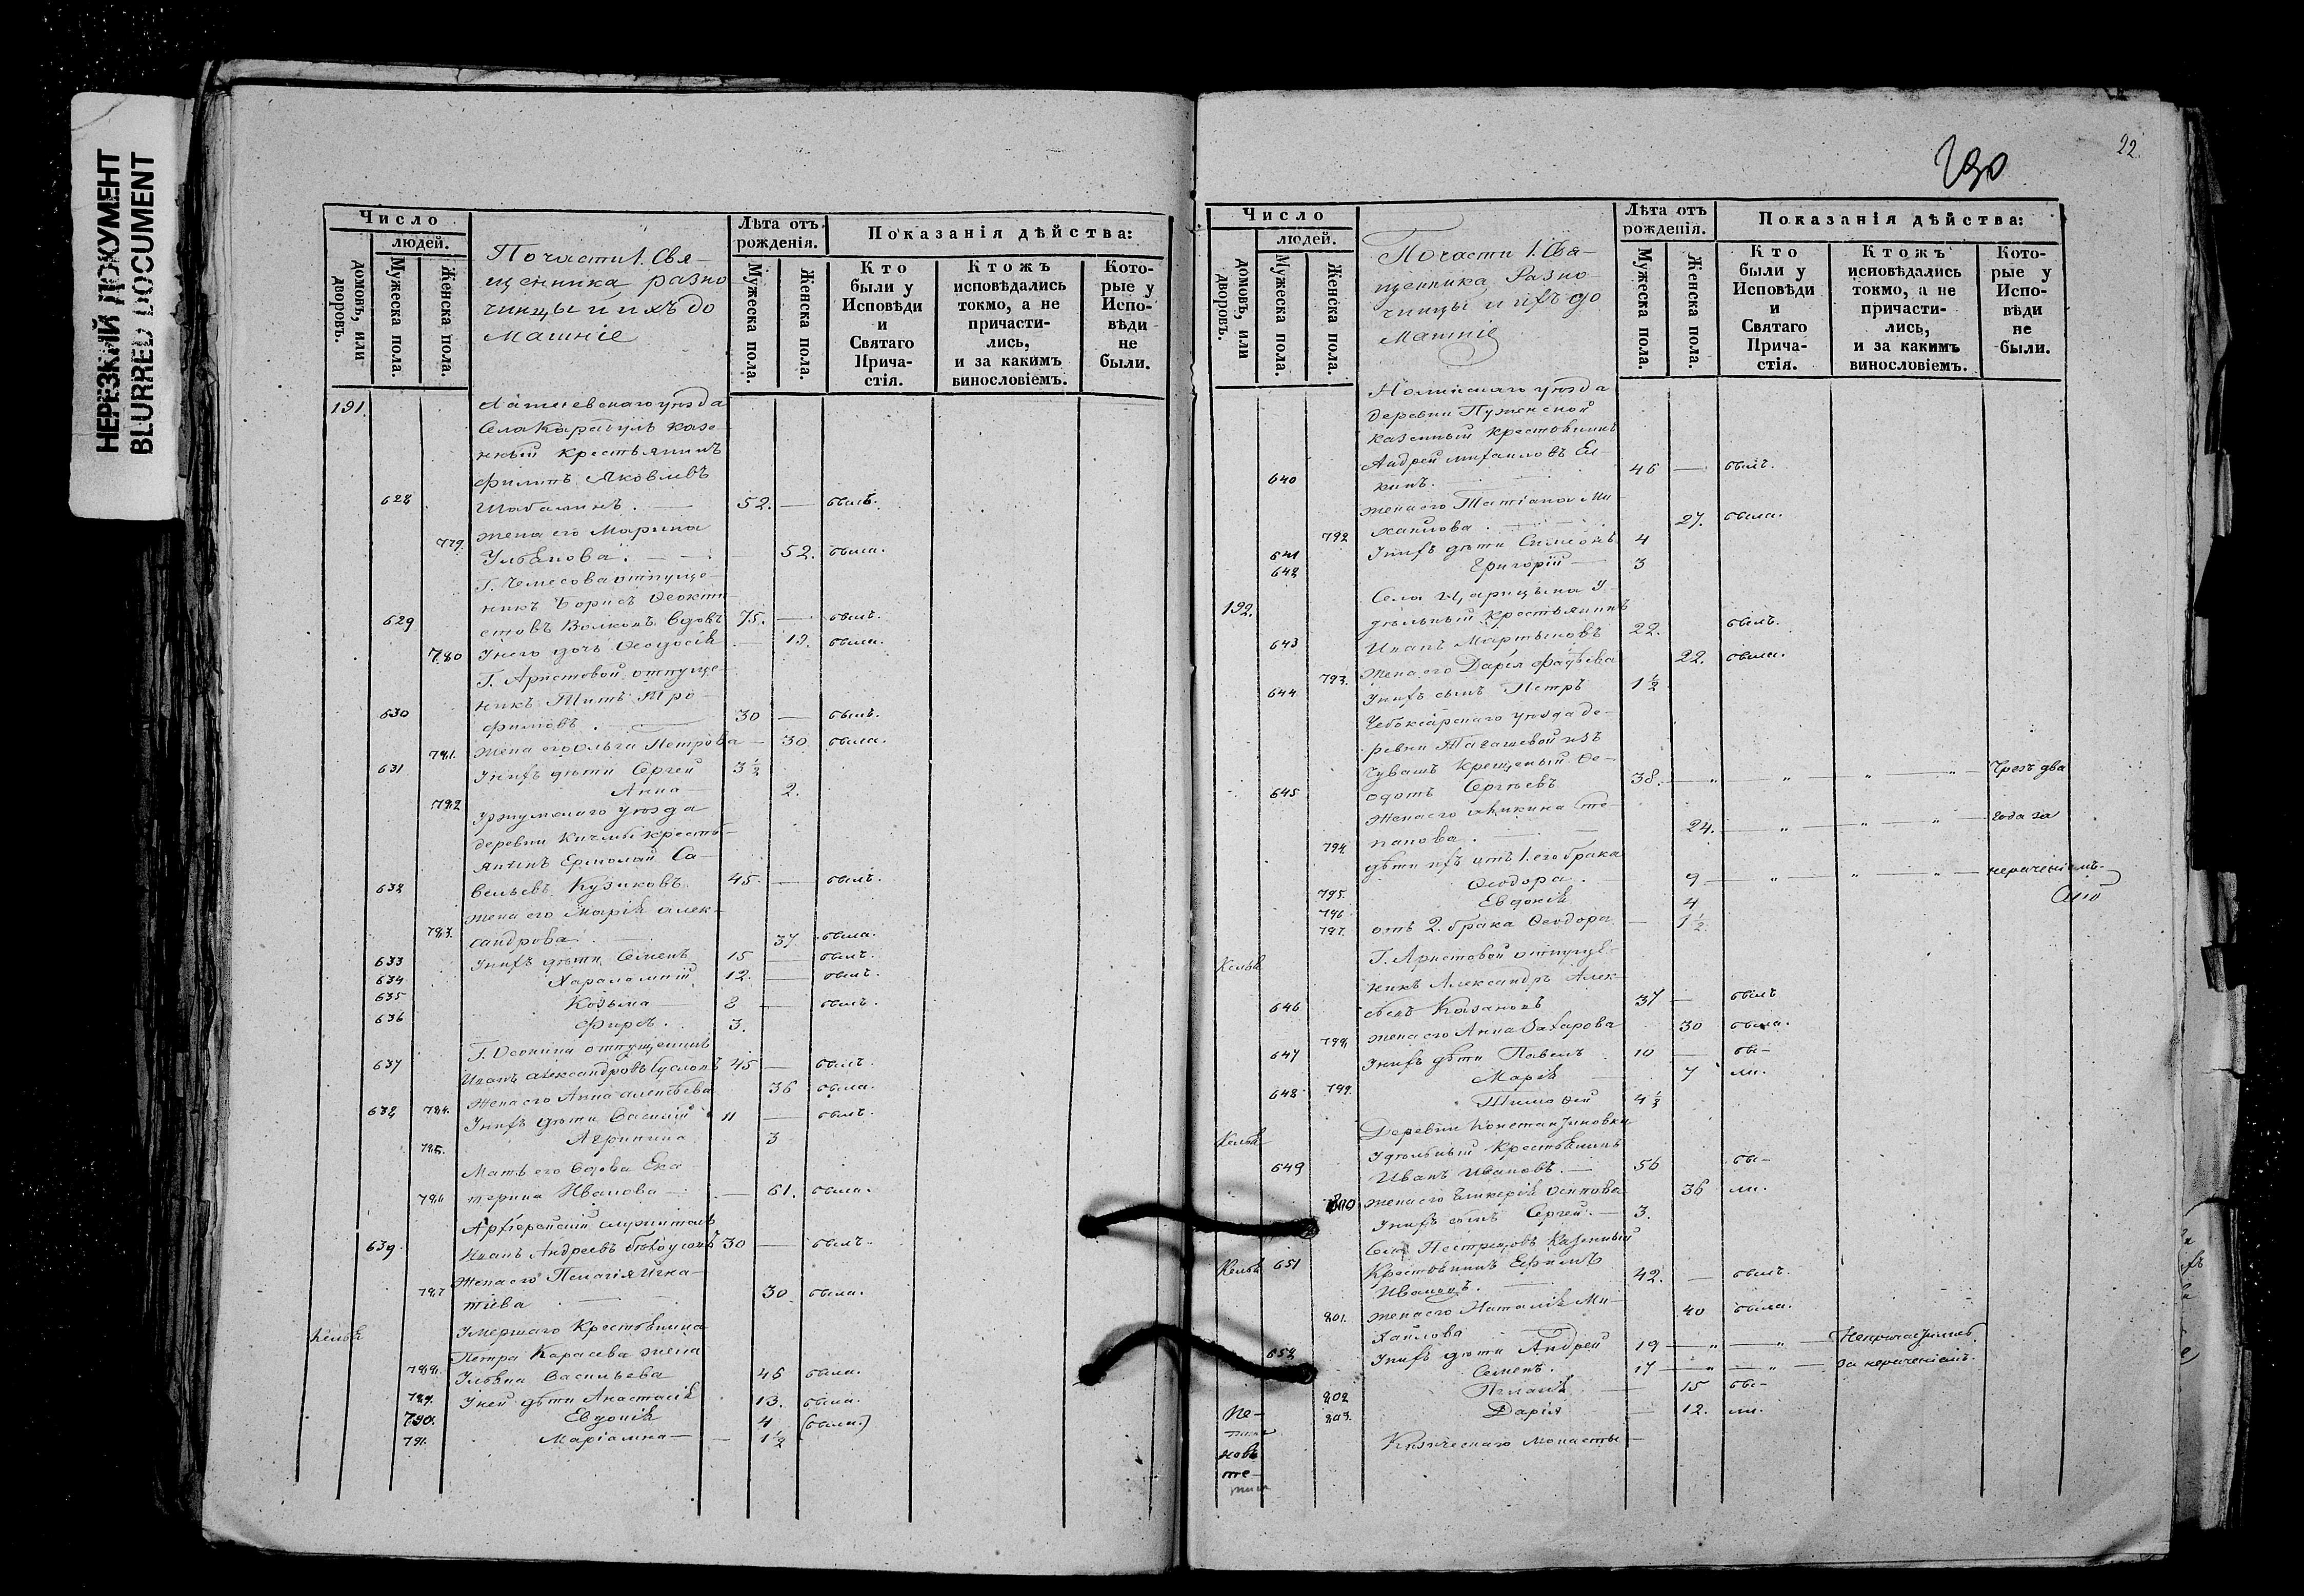 НЕРЕЗКИЙ ДОКУМЕНТ
BLURRED DOCUMENT
Число
людей.
домовъ, или дворовъ.
Мужеска пола.
Женска пола.
По части 1. Свя-
щенника разно
чинцы и ихъ до
машніе
Лѣта отъ рожденія.
Мужеска пола.
Женска пола.
Показанія дѣйства:
Кто были у Исповѣди и Святаго Прича-стія.
Ктожъ исповѣдались токмо, а не причасти-лись, и за какимъ винословіемъ.
Кото-рые у Испо-вѣди не были.
191. уѣзда
Села казе-
нный крестьянинъ
Филипъ Яковлевъ
628 Шабалинъ. 52. — былъ.
жена его Марина
779. Ульянова. — 52. была.
отпуще-
никъ Борисъ Ѳеокти
629 стовъ Волковъ вдовъ 75. — былъ.
780 У него дочь Ѳеодосія — 19. была.
Г. Аристовой отпуще-
никъ Титъ Тро-
630 фимовъ. 30 — былъ.
781. Жена его Ольга Петрова — 30 была.
631 У нихъ дѣти Сергей 3 1/2
782 Анна 2.
Уржумскаго уѣзда
деревни Кичмы кресть-
янинъ Ермолай Са-
632 вельевъ Кузиковъ. 45. — былъ.
жена его Марія Алек-
783. сандрова. 37 была.
633 У нихъ дѣти Семенъ 15 — былъ.
634 Харалампій 12. — былъ.
635 Козьма 8 — былъ.
636 Фирсъ. 3.
Г. отпущенникъ
637 Иванъ Александровъ 45 — былъ.
784. Жена его Анна Алексѣева 36 была.
638 У нихъ дѣти Василій 11 — былъ.
785. Агрипина 3
Мать его вдова Ека
786 терина Иванова — 61. была.
Архіерейскій служитель
639 Иванъ Андреевъ Бѣлоусовъ 30 — былъ.
Жена его Пелагія Игна-
787 тіева 30 была.
Келья Умершаго крестьянина
Петра Карасева жена
788. Ульяна Васильева 45 была.
789. У ней дѣти Анастасія 13. была.
790. Евдокія 4 (были.)
791. Маріамна — 1 1/2
22.
Число
людей.
домовъ, или дворовъ.
Мужеска пола.
Женска пола.
По части 1. Свя-
щенника Разно-
чинцы и ихъ до
машніе
Лѣта отъ рожденія.
Мужеска пола.
Женска пола.
Показанія дѣйства:
Кто были у Исповѣди и Святаго Прича-стія.
Ктожъ исповѣдались токмо, а не причасти-лись, и за какимъ винословіемъ.
Кото-рые у Испо-вѣди не были.
Нолинскаго уѣзда
деревни
казенный крестьянинъ
Андрей Михаиловъ Ел
640 кинъ. 46 — былъ.
жена его Татіана Ми
792 хайлова. 27. была.
641 У нихъ дѣти Симеонъ 4
642 Григорій — 3
192. Села Царицына У
дѣльный крестьянинъ
643 Иванъ Мартыновъ 22. былъ.
793. Жена его Дарія Фадѣева 22. была.
644. У нихъ сынъ Петръ 1 1/2
Чебоксарскаго уѣзда де-
ревни изъ
Чувашъ крещеный Ѳе-
645 одотъ Сергѣевъ 38. — „ — „ — „ — Чрезъ два
Жена его Акилина Сте
794. панова. 24. — „ — „ — „ — года за
дѣти ихъ отъ 1. его брака
795. Ѳеодора. 9 — „ — „ — нераченіемъ.
796 Евдокія 4
797. отъ 2. брака Ѳеодора — 1 1/2.
Келья Г. Аристовой отпуще-
никъ Александръ Алек-
646 сѣевъ Казаковъ 37 — былъ
798. жена его Анна Захарова 30 была.
647 У нихъ дѣти Павелъ 10 — бы-
799. Марія 7 ли.
648 Тимоѳей 4 1/2
Келья Деревни Константиновки
Удѣльный крестьянинъ
649 Иванъ Ивановъ. — 56 бы-
800 жена его Гликерія Осипова 36 ли.
У нихъ сынъ Сергей. — 3.
Села Пестрецовъ Казенный
Келья 651 Крестьянинъ Ефимъ
Ивановъ. 42. — былъ.
801. жена его Наталія Ми- 40 была.
хайлова
652 У нихъ дѣти Андрей 19 — „ — „ —
Семенъ. 17 — „ — „ — за нераченіемъ.
802 Пелагія 15 бы-
803. Дарія 12. ли.
Кизическаго монасты-